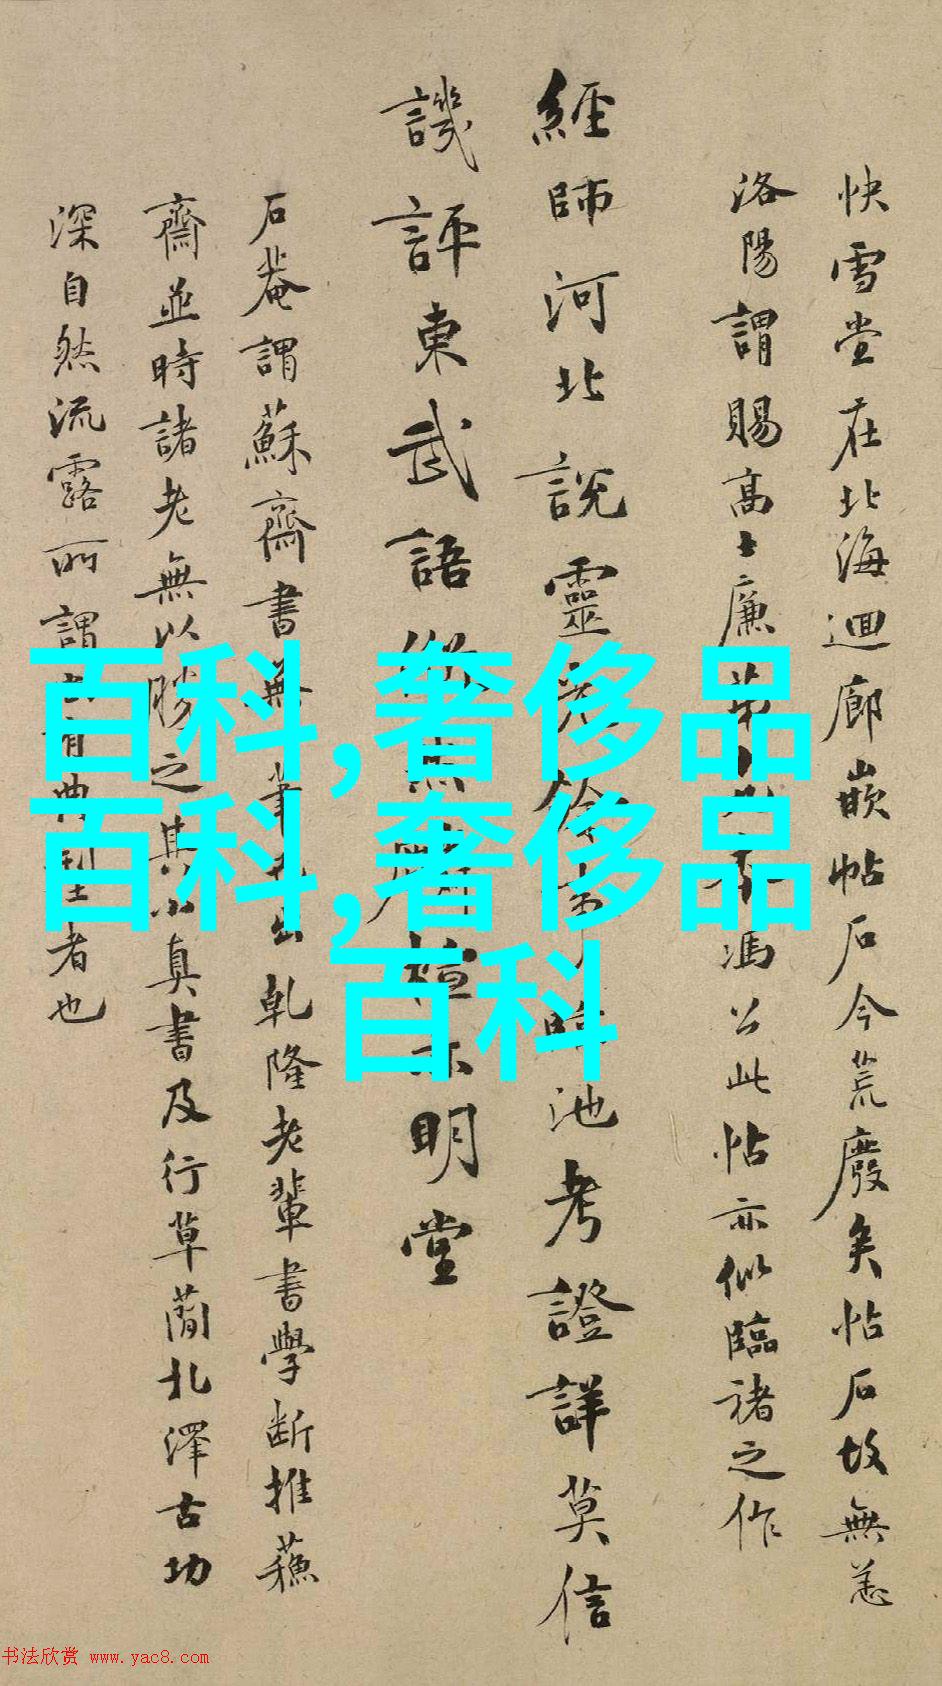 快雪堂在北海迴廊嵌帖石今荒廢矣帖石故無恙
洛陽謂賜高士廉 馮公此帖亦似臨褚之作
經師河北說靈 臨池考證詳莫信
譏評東武語 明堂
石菴謂蘇齋書無 出乾隆老輩書學斷推蘇
齋並時諸老無以勝之其小真書及行草蘭北澤古功
深自然流露所謂 者也
百科,奢侈品
百科,奢侈品
百科
书法欣赏 www.yac8.com